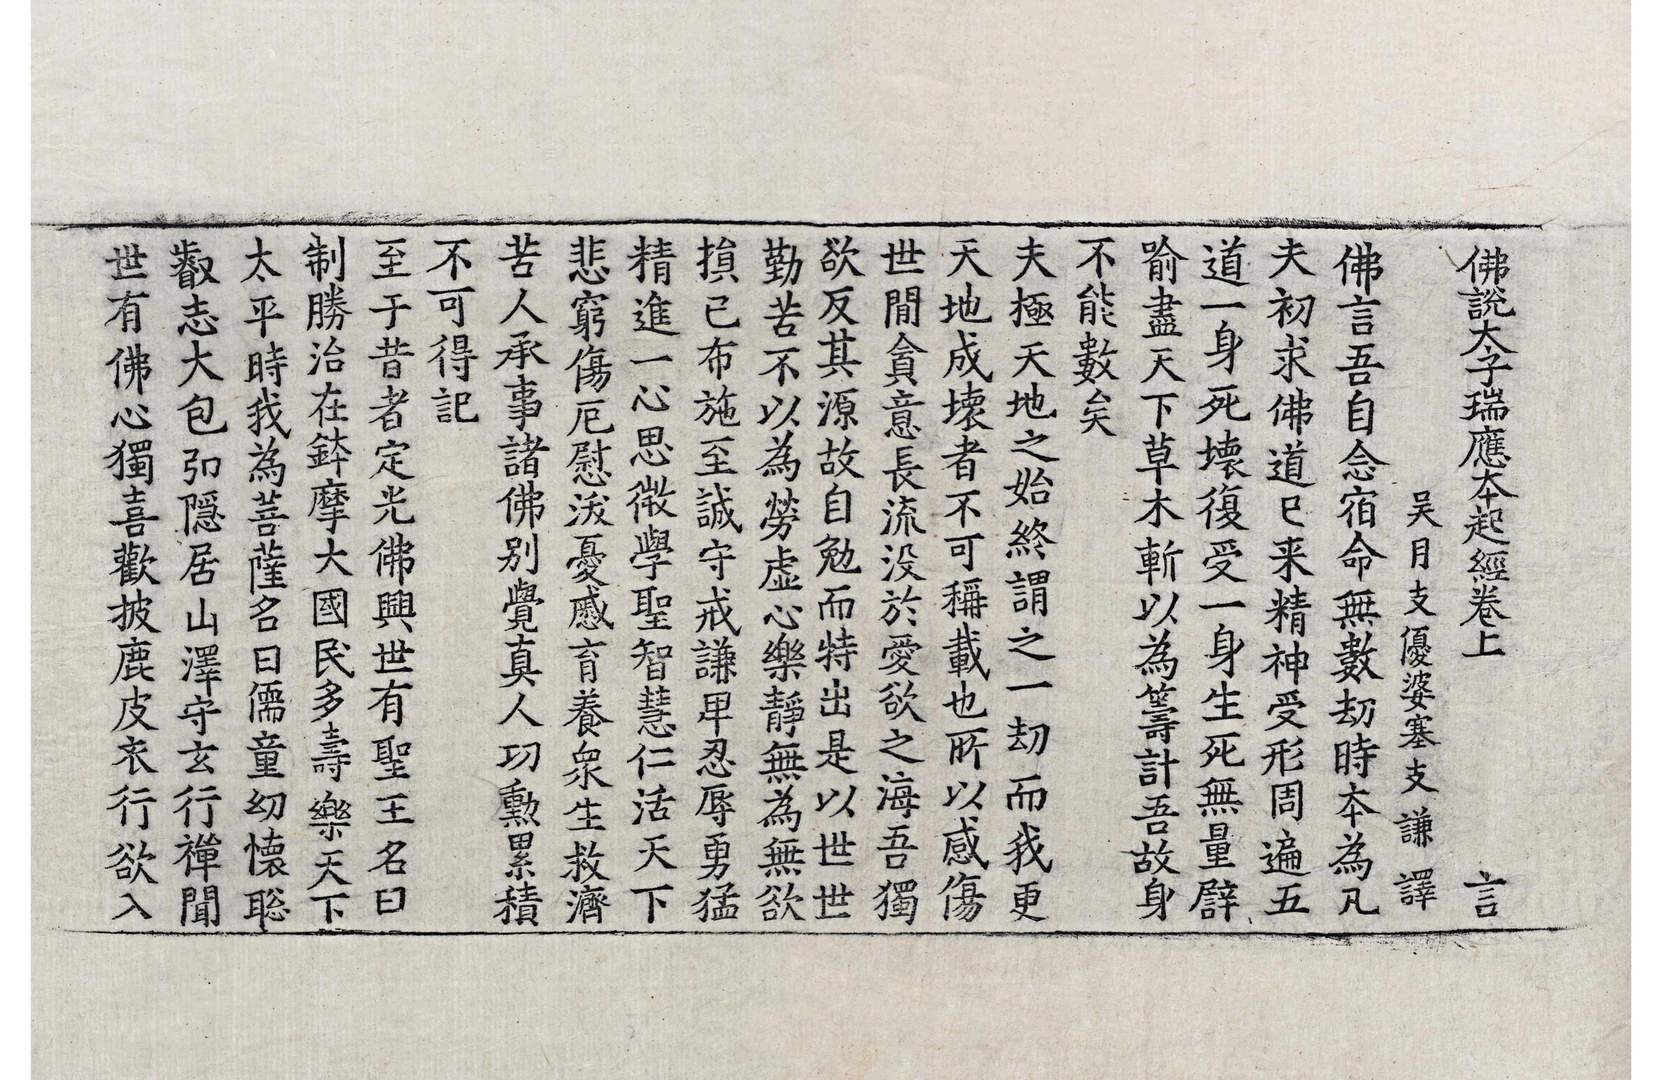 佛說太子瑞應本起經卷上 言
吴月支優婆塞支謙譯
佛言吾自念宿命無數劫時本為凡
夫初求佛道已来精神受形周遍五
道一身死壞復受一身生死無量譬
喻盡天下草木斬以為籌計吾故身
不能數矣
夫極天地之始終謂之一劫而我更
天地成壞者不可稱載也所以感傷
世間貪意長流没於愛欲之海吾獨
欲反其源故自勉而特出是以世世
勤苦不以為勞虚心樂靜無為無欲
損已布施至誠守戒謙卑忍辱勇猛
精進一心思微學聖智慧仁活天下
悲窮傷厄慰沷憂慼育養衆生救濟
苦人承事諸佛别覺真人功勲累積
不可得記
至于昔者定光佛興世有聖王名曰
制勝治在鉢摩大國民多壽樂天下
太平時我為菩薩名曰儒童幼懷聡
叡志大包弘隱居山澤守玄行禪聞
世有佛心獨喜歡披鹿皮衣行欲入